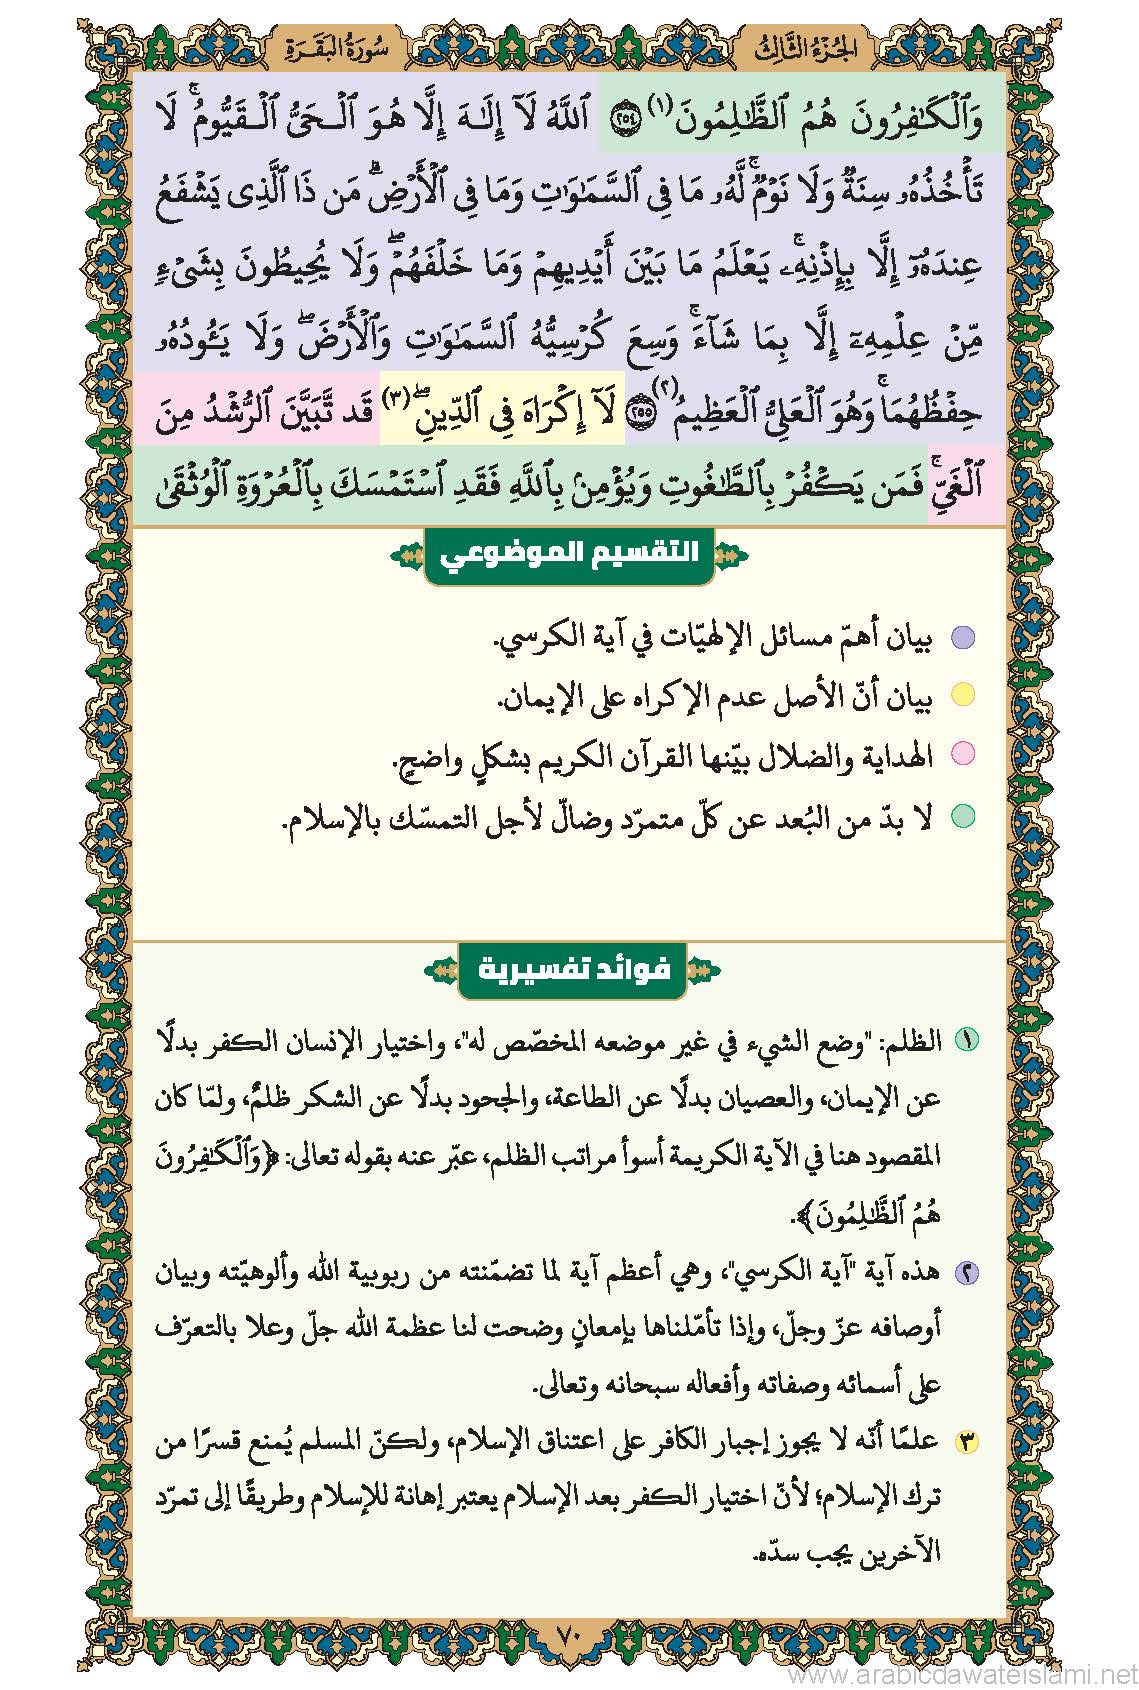 الجُزْءُ الثَّالِثُ
سُورَةُ البَقَرَةِ
وَٱلْكَـٰفِرُونَ هُمُ ٱلظَّـٰلِمُونَ(١) ٢٥٤ ٱللَّهُ لَآ إِلَـٰهَ إِلَّا هُوَ ٱلْـحَىُّ ٱلْـقَيُّومُ ۚ لَا
تَأْخُذُهُۥ سِنَةٌ وَلَا نَوْمٌ ۚ لَّهُۥ مَا فِى ٱلسَّمَـٰوَٰتِ وَمَا فِى ٱلْأَرْضِ ۗ مَن ذَا ٱلَّذِى يَشْفَعُ
عِندَهُۥٓ إِلَّا بِإِذْنِهِۦ ۚ يَعْلَمُ مَا بَيْنَ أَيْدِيهِمْ وَمَا خَلْفَهُمْ ۖ وَلَا يُحِيطُونَ بِشَىْءٍ
مِّنْ عِلْمِهِۦٓ إِلَّا بِمَا شَآءَ ۚ وَسِعَ كُرْسِيُّهُ ٱلسَّمَـٰوَٰتِ وَٱلْأَرْضَ ۖ وَلَا يَـُٔودُهُۥ
حِفْظُهُمَا ۚ وَهُوَ ٱلْعَلِىُّ ٱلْعَظِيمُ(٢) ٢٥٥ لَآ إِكْرَاهَ فِى ٱلدِّينِ ۖ(٣) قَد تَّبَيَّنَ ٱلرُّشْدُ مِنَ
ٱلْغَىِّ ۚ فَمَن يَكْفُرْ بِٱلطَّـٰغُوتِ وَيُؤْمِنۢ بِٱللَّهِ فَقَدِ ٱسْتَمْسَكَ بِٱلْعُرْوَةِ ٱلْوُثْقَىٰ
التقسيم الموضوعي
بيان أهمّ مسائل الإلهيّات في آية الكرسي.
بيان أنّ الأصل عدم الإكراه على الإيمان.
الهداية والضلال بيّنها القرآن الكريم بشكلٍ واضحٍ.
لا بدّ من البُعد عن كلّ متمرّد وضالّ لأجل التمسّك بالإسلام.
فوائد تفسيرية
١ الظلم: "وضع الشيء في غير موضعه المخصّص له"، واختيار الإنسان الكفر بدلًا
عن الإيمان، والعصيان بدلًا عن الطاعة، والجحود بدلًا عن الشكر ظلمٌ، ولمّا كان
المقصود هنا في الآية الكريمة أسوأ مراتب الظلم، عبّر عنه بقوله تعالى: ﴿وَٱلْكَـٰفِرُونَ
هُمُ ٱلظَّـٰلِمُونَ﴾.
٢ هذه آية "آية الكرسي"، وهي أعظم آية لما تضمّنته من ربوبية الله وألوهيّته وبيان
أوصافه عزّ وجلّ، وإذا تأمّلناها بإمعانٍ وضحت لنا عظمة الله جلّ وعلا بالتعرّف
على أسمائه وصفاته وأفعاله سبحانه وتعالى.
٣ علمًا أنّه لا يجوز إجبار الكافر على اعتناق الإسلام، ولكنّ المسلم يُمنع قسرًا من
ترك الإسلام؛ لأنّ اختيار الكفر بعد الإسلام يعتبر إهانة للإسلام وطريقًا إلى تمرّد
الآخرين يجب سدّه.
٧٠
www.arabicdawateislami.net